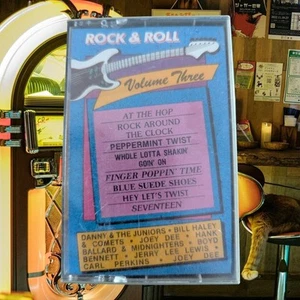 ROCK & ROLL
Volume Three
AT THE HOP
ROCK AROUND
THE CLOCK
PEPPERMINT TWIST
WHOLE LOTTA SHAKIN'
GOIN' ON
FINGER POPPIN' TIME
BLUE SUEDE SHOES
HEY LET'S TWIST
SEVENTEEN
DANNY & THE JUNIORS • BILL HALEY
& COMETS • JOEY DEE • HANK
BALLARD & MIDNIGHTERS • BOYD
BENNETT • JERRY LEE LEWIS •
CARL PERKINS • JOEY DEE